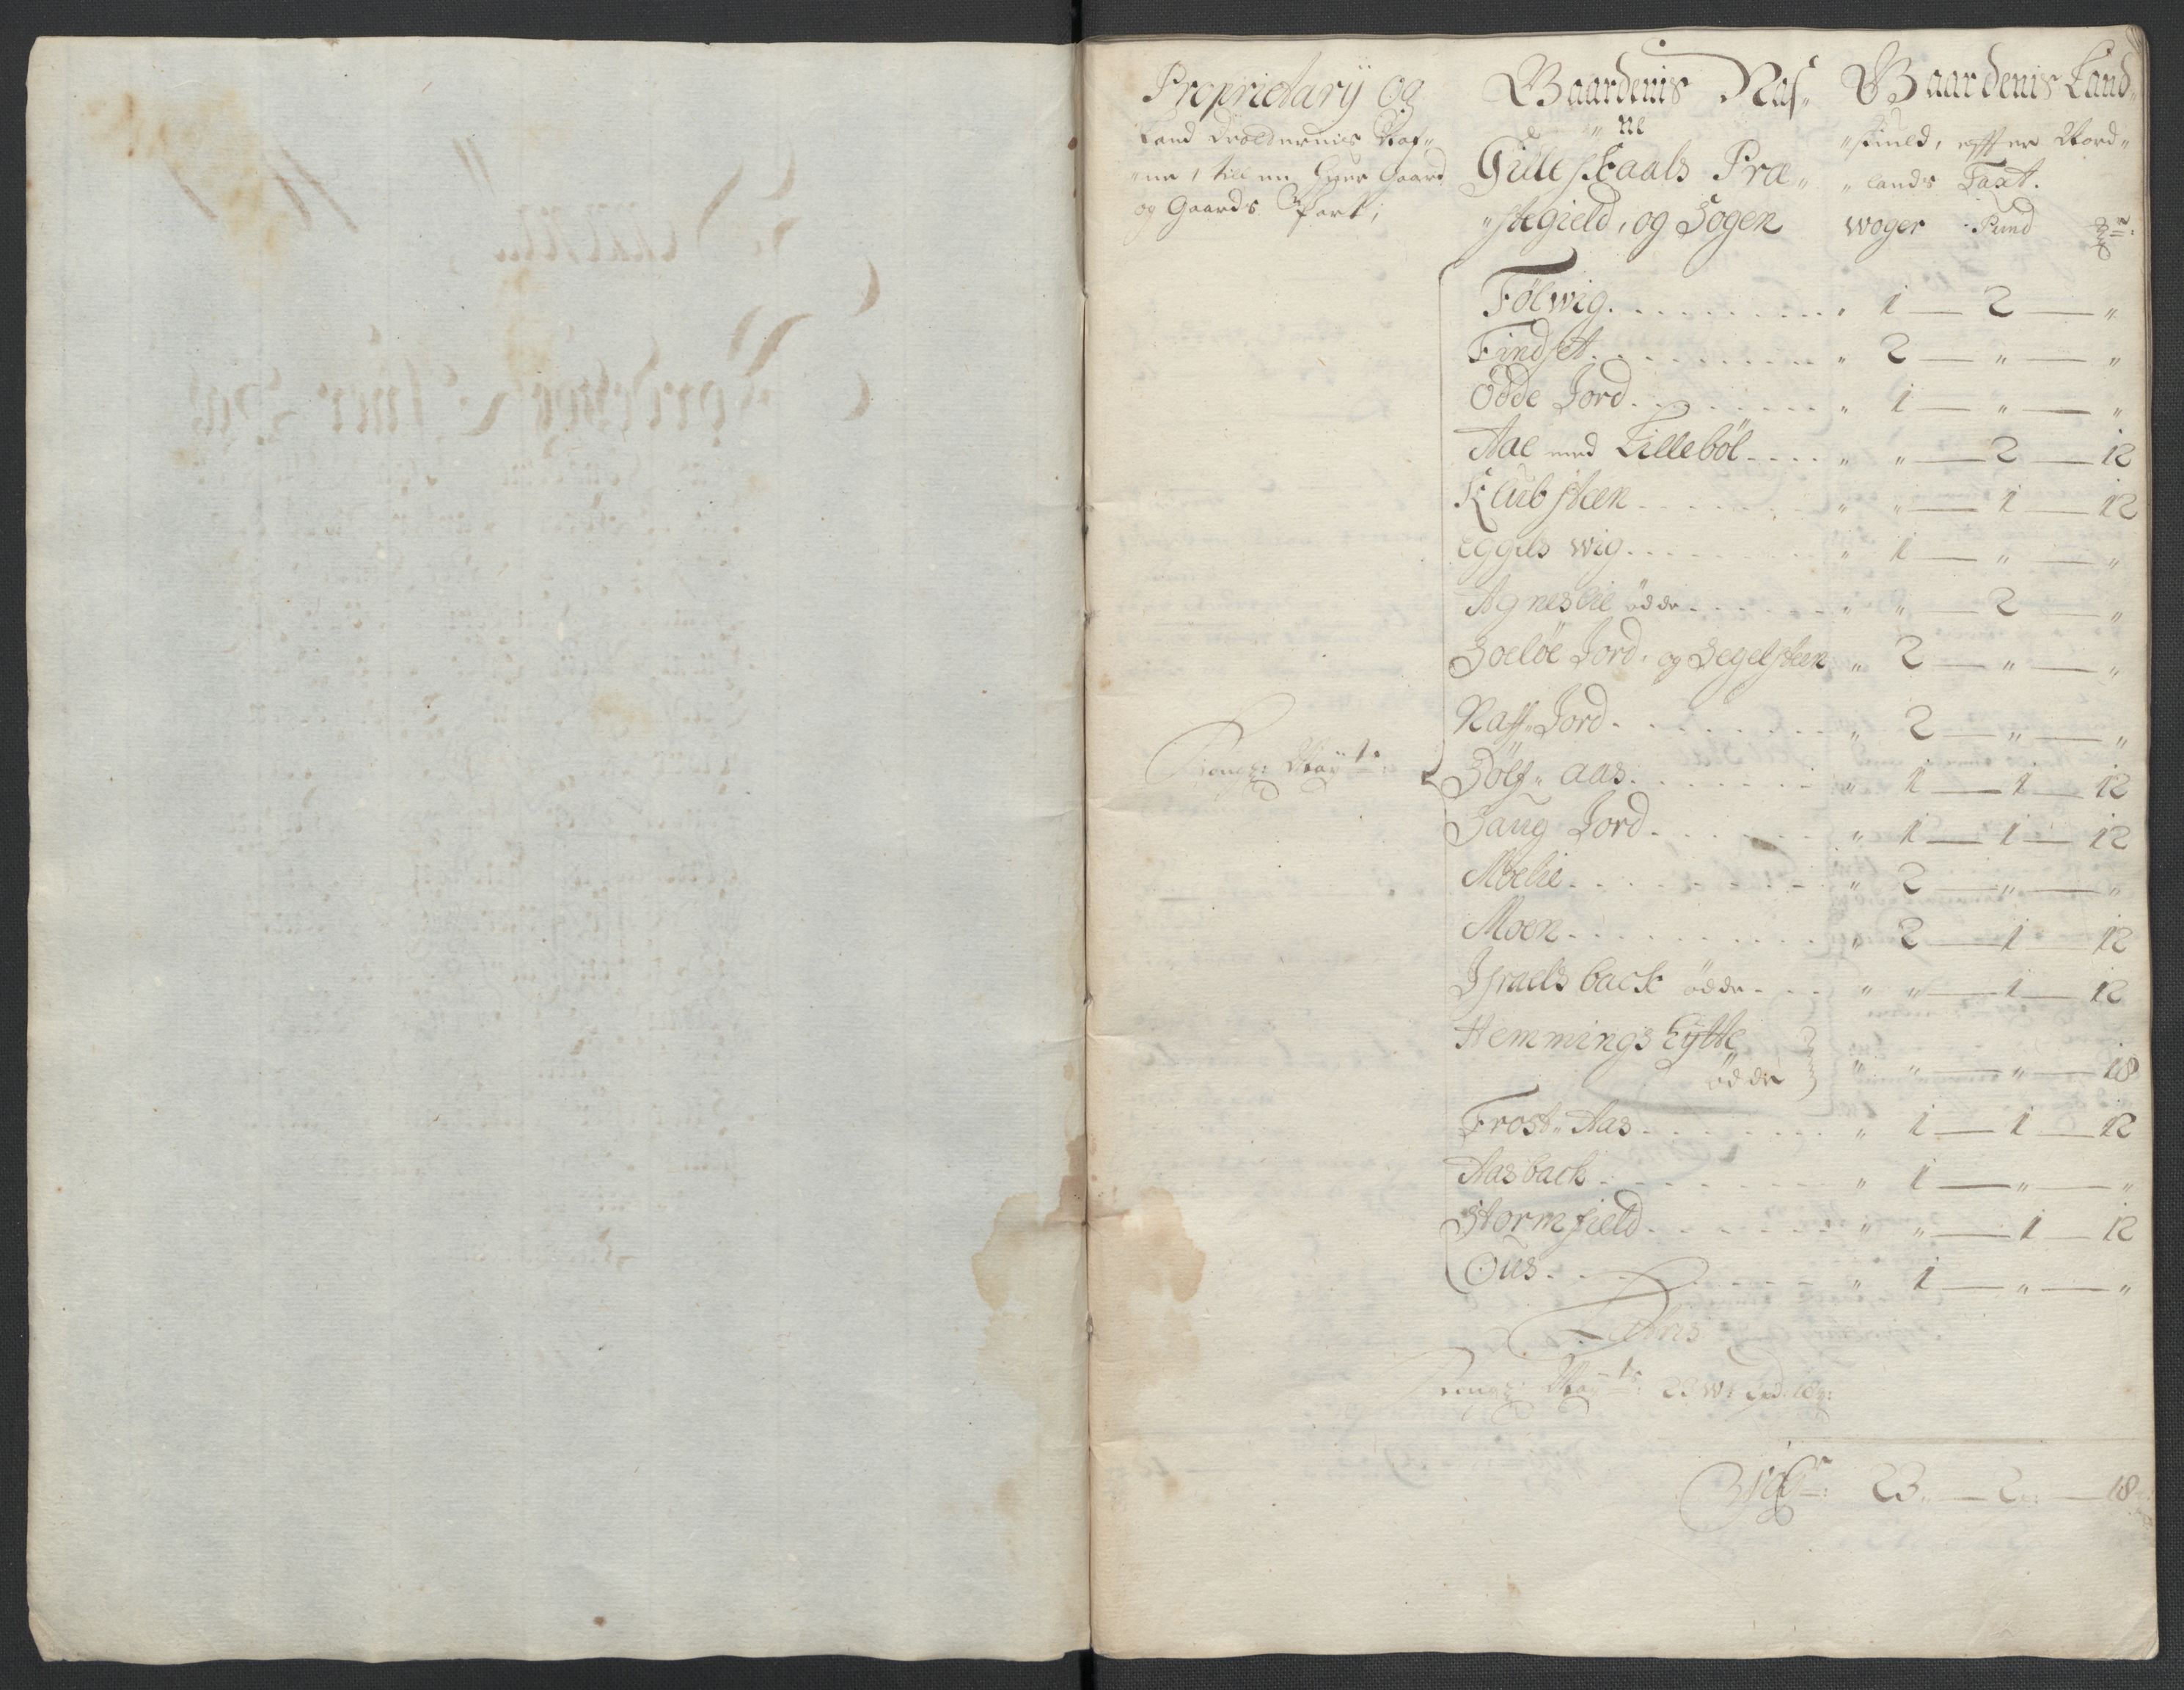 Proprietarÿ og
Land Drotternis Naf„
„ne, till en hver Gaard
og Gaards Part;
Gaardenis Naf„
„ne
Gilleskaals Præ„
„stegield, og Sogen
Gaardenis Land„
„skuld, effter Nord„
„lands Taxt.
woger Pund
Fölwig . . . „ 1 — 2 — „
Findset . . . „ 2 — „ — „
Odde Jord . . . „ 1 — „ — „
Aae med Lilleböl . . . „ „ — 2 — 12
Klubsteen . . . „ „ — 1 — 12
Eggels wig . . . „ 1 — „ — „
Agneslie öde . . . „ „ — 2 — „
Soelöe Jord, og Segelsteen „ 2 — „ — „
Naff„ Jord . . . „ 2 — „ — „
Kongl: Maÿts:
Sölf„ aas . . . „ 1 — 1 — 12
Saug Jord . . . „ 1 — 1 — 12
Moelie . . . „ 2 — „ — „
Moen . . . „ 2 — 1 — 12
Israelsback öde . . . „ „ — 1 — 12
Hemmings hÿtte
öde „ „ — „ — 18
Frost„ Aas . . . „ 1 — 1 — 12
Aasback . . . „ 1 — „ — „
Stormfield . . . „ „ — 1 — 12
Ous . . . „ 1 — „ — „
Kongl: Maÿts: 23 W: 2 pd: 18
23 — 2 — 18